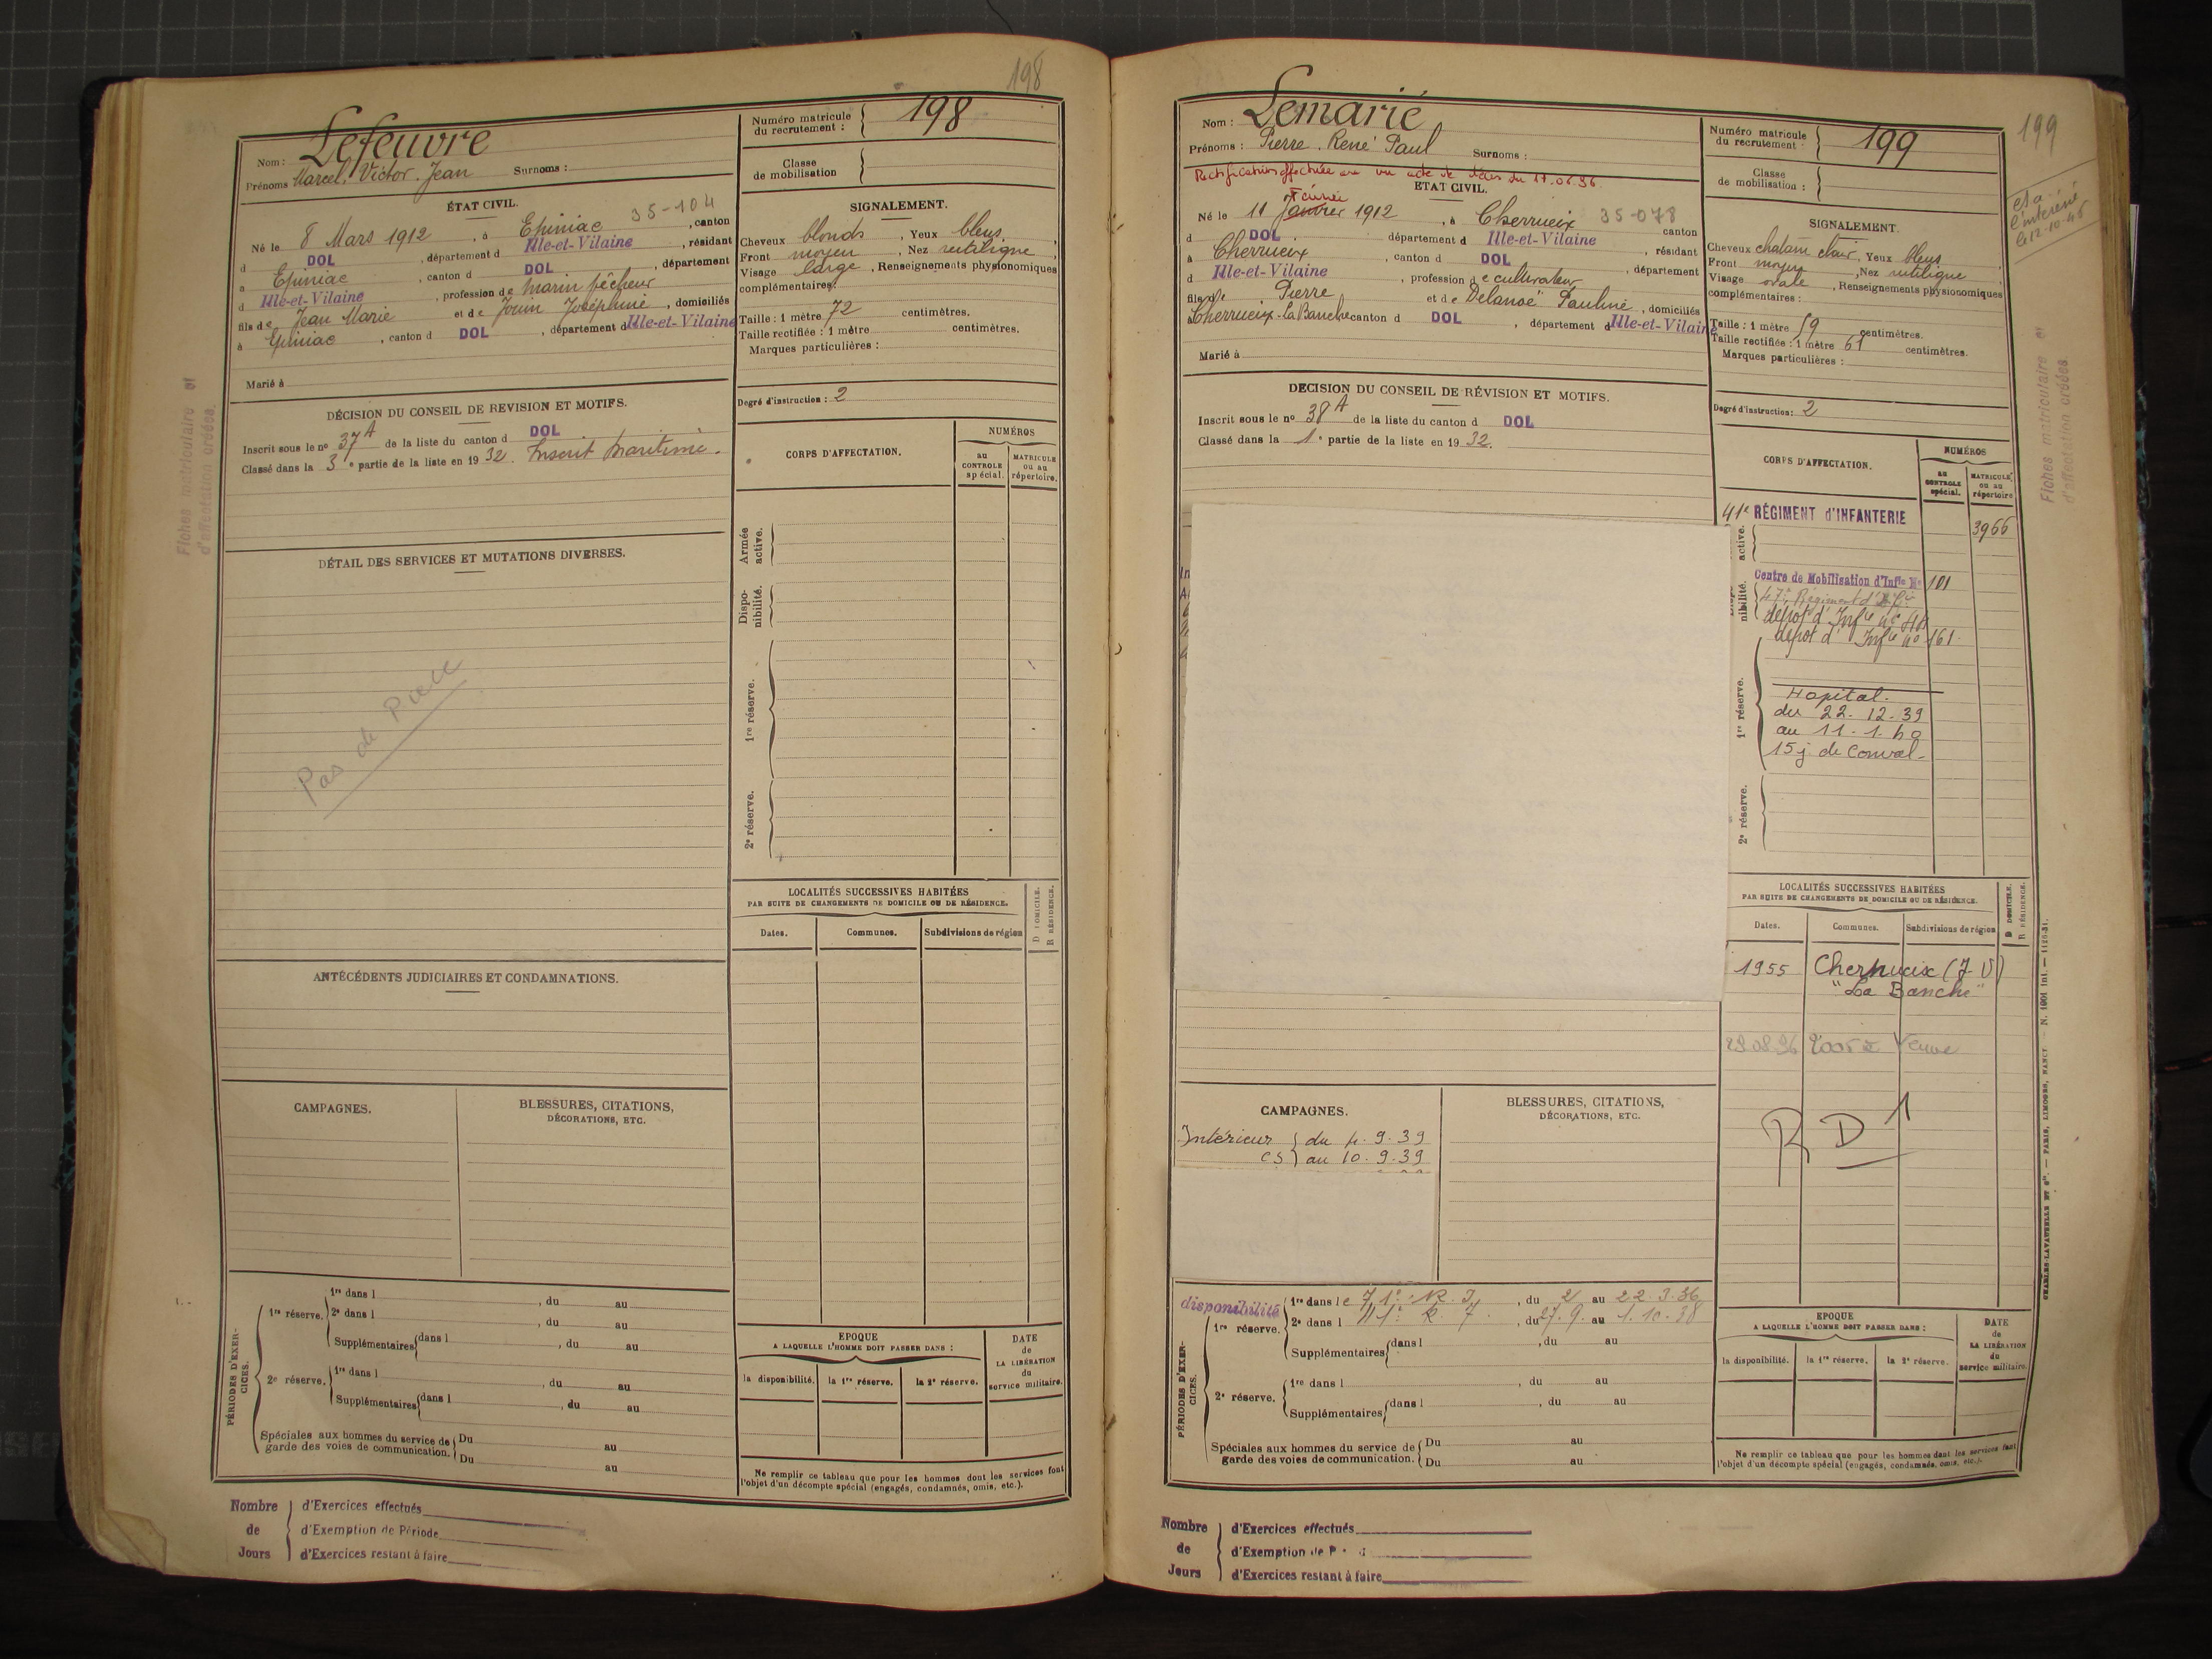 198
Nom : Lefeuvre
Prénoms Marcel, Victor, Jean Surnoms :
Numéro matricule du recrutement : 198
Classe de mobilisation
ÉTAT CIVIL.
35-104
Né le 8 Mars 1912, à Epiniac, canton
d DOL, département d Ille-et-Vilaine, résidant
à Epiniac, canton d DOL, département
d Ille-et-Vilaine, profession de marin pêcheur
fils de Jean Marie et de Jouin Joséphine, domiciliés
à Epiniac, canton d DOL, département d Ille-et-Vilaine
Marié à
SIGNALEMENT.
Cheveux blonds, Yeux bleus,
Front moyen, Nez rectiligne,
Visage large, Renseignements physionomiques
complémentaires :
Taille : 1 mètre 72 centimètres.
Taille rectifiée : 1 mètre centimètres.
Marques particulières :
Degré d'instruction : 2
DÉCISION DU CONSEIL DE REVISION ET MOTIFS.
Inscrit sous le no 37A de la liste du canton d DOL
Classé dans la 3e partie de la liste en 1932. Inscrit maritime.
DÉTAIL DES SERVICES ET MUTATIONS DIVERSES.
Fiches matriculaire et
d'affectation créées.
CORPS D'AFFECTATION.
NUMÉROS
au CONTROLE spécial.
MATRICULE ou au répertoire.
Armée active.
Dispo-nibilité.
1re réserve.
2e réserve.
ANTÉCÉDENTS JUDICIAIRES ET CONDAMNATIONS.
LOCALITÉS SUCCESSIVES HABITÉES
PAR SUITE DE CHANGEMENTS DE DOMICILE OU DE RÉSIDENCE.
D DOMICILE.
R RÉSIDENCE.
Dates. Communes. Subdivisions de région
CAMPAGNES.
BLESSURES, CITATIONS,
DÉCORATIONS, ETC.
PÉRIODES D'EXER-CICES.
1re réserve.
1re dans l , du au
2e dans l , du au
Supplémentaires dans l , du au
2e réserve.
1re dans l , du au
Supplémentaires dans l , du au
Spéciales aux hommes du service de garde des voies de communication.
Du au
Du au
EPOQUE
A LAQUELLE L'HOMME DOIT PASSER DANS :
la disponibilité. la 1re réserve. la 2e réserve.
DATE de LA LIBÉRATION du service militaire.
Ne remplir ce tableau que pour les hommes dont les services font
l'objet d'un décompte spécial (engagés, condamnés, omis, etc.).
Nombre de Jours
d'Exercices effectués
d'Exemption de Période
d'Exercices restant à faire
199
Nom : Lemarié
Prénoms : Pierre, René Paul Surnoms :
Numéro matricule du recrutement 199
Classe de mobilisation :
Rectification effectuée
ETAT CIVIL.
Février
Né le 11 Janvier 1912, à Cherrueix 35-078 canton
d DOL département d Ille-et-Vilaine résidant
à Cherrueix, canton d DOL
d Ille-et-Vilaine, profession de cultivateur, département
fils de Pierre et de Delanoë Pauline, domiciliés
à Cherrueix-la Banche canton d DOL, département d Ille-et-Vilaine
Marié à
SIGNALEMENT.
Cheveux chatain clair, Yeux bleus
Front moyen, Nez rectiligne,
Visage ovale, Renseignements physionomiques
complémentaires :
Taille : 1 mètre 59 centimètres.
Taille rectifiée : 1 mètre 61 centimètres.
Marques particulières :
Degré d'instruction : 2
DECISION DU CONSEIL DE RÉVISION ET MOTIFS.
Inscrit sous le no 38A de la liste du canton d DOL
Classé dans la 1e partie de la liste en 1932.
Fiches matriculaire et
d'affectation créées
CORPS D'AFFECTATION.
NUMÉROS
au CONTROLE spécial.
MATRICULE ou au répertoire
41e RÉGIMENT d'INFANTERIE 3966
active.
Centre de Mobilisation d'Infie No 101
nibilité.
dépot d'Infie no 161
1re réserve.
Hopital.
du 22.12.39
au 11.1.40
15 j. de Conval.
2e réserve.
LOCALITÉS SUCCESSIVES HABITÉES
PAR SUITE DE CHANGEMENTS DE DOMICILE OU DE RÉSIDENCE.
D DOMICILE.
R RÉSIDENCE.
Dates. Communes. Subdivisions de région
1955 Cherrueix (I V)
"La Banche"
R D 1
CAMPAGNES.
Intérieur du 4.9.39
CS au 10.9.39
BLESSURES, CITATIONS,
DÉCORATIONS, ETC.
PÉRIODES D'EXER-CICES.
disponibilité
1re dans le 71e R. I., du 2 au 22.3.36
2e dans l R. I., du 27.9. au 1.10.38
1re réserve.
Supplémentaires dans l , du au
2e réserve.
1re dans l , du au
Supplémentaires dans l , du au
Spéciales aux hommes du service de garde des voies de communication.
Du au
Du au
EPOQUE
A LAQUELLE L'HOMME DOIT PASSER DANS :
la disponibilité. la 1re réserve. la 2e réserve.
DATE de LA LIBÉRATION du service militaire.
Ne remplir ce tableau que pour les hommes dont les services font
l'objet d'un décompte spécial (engagés, condamnés, omis, etc.).
Nombre de Jours
d'Exercices effectués
d'Exemption de P
d'Exercices restant à faire